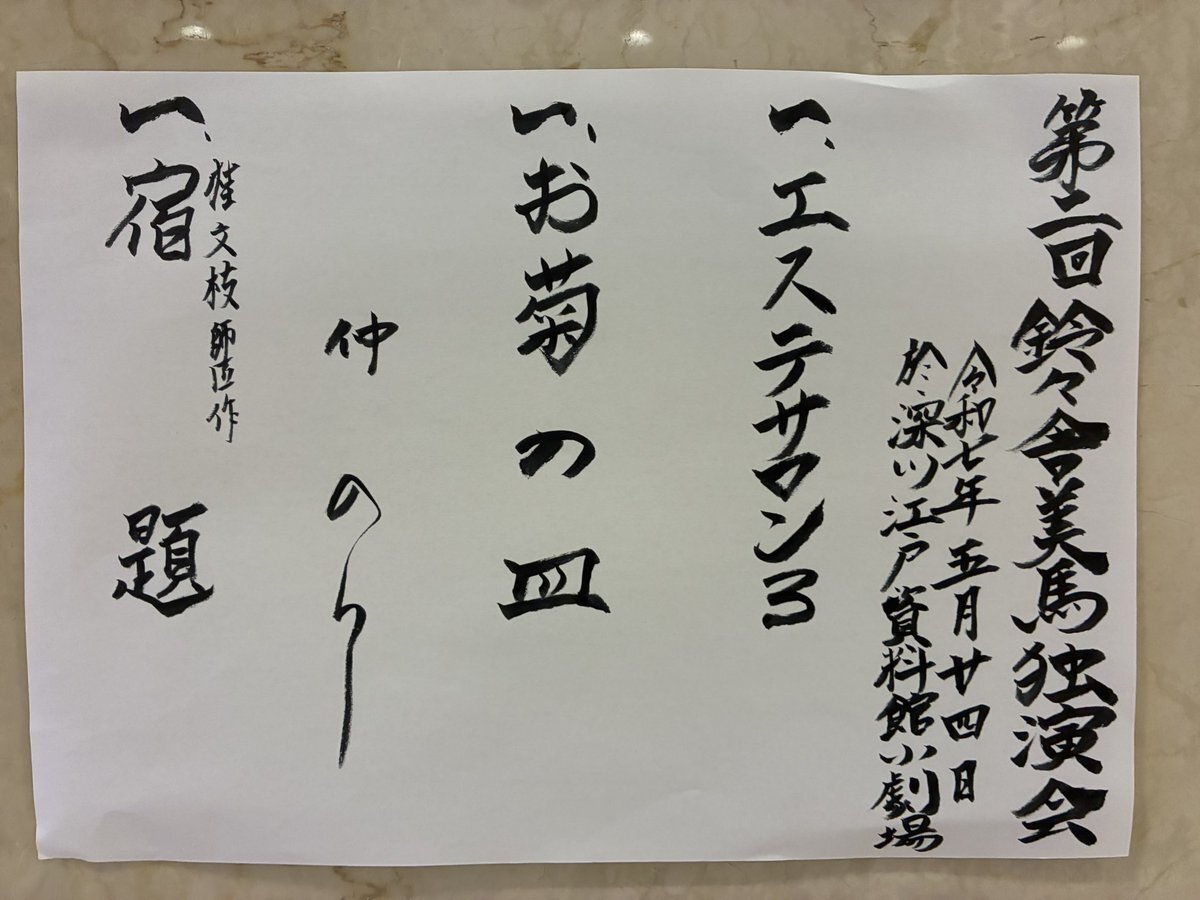 第二回 鈴々舎美馬独演会
令和七年 五月廿四日
於、深川江戸資料館小劇場
一、エステサロン3
一、お菊の皿
仲のり
桂文枝師匠作
一、宿題